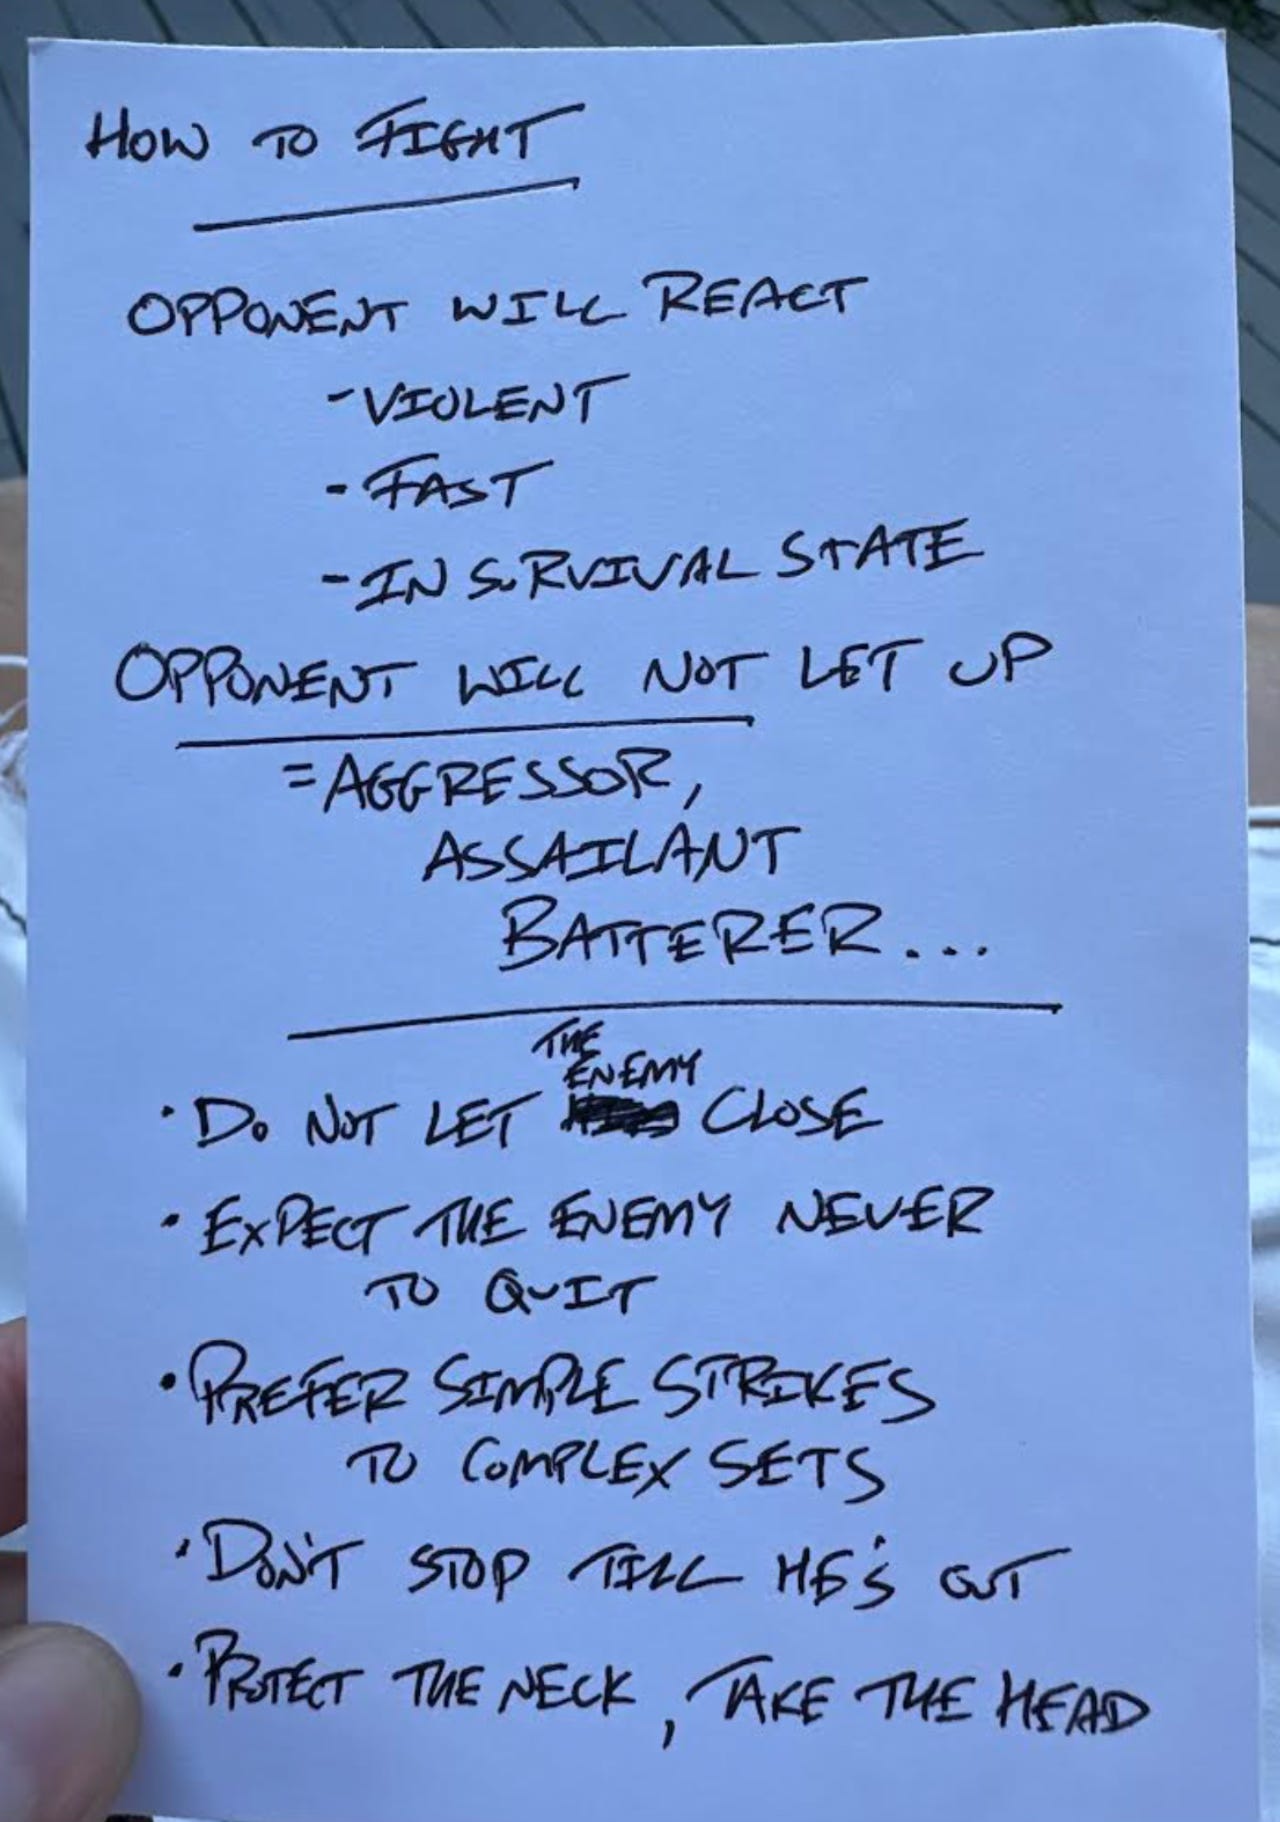 HOW TO FIGHT
OPPONENT WILL REACT
- VIOLENT
- FAST
- IN SURVIVAL STATE
OPPONENT WILL NOT LET UP
= AGGRESSOR,
ASSAILANT
BATTERER...
THE
ENEMY
• DO NOT LET CLOSE
• EXPECT THE ENEMY NEVER
TO QUIT
• PREFER SIMPLE STRIKES
TO COMPLEX SETS
• DON'T STOP TILL HE'S OUT
• PROTECT THE NECK, TAKE THE HEAD